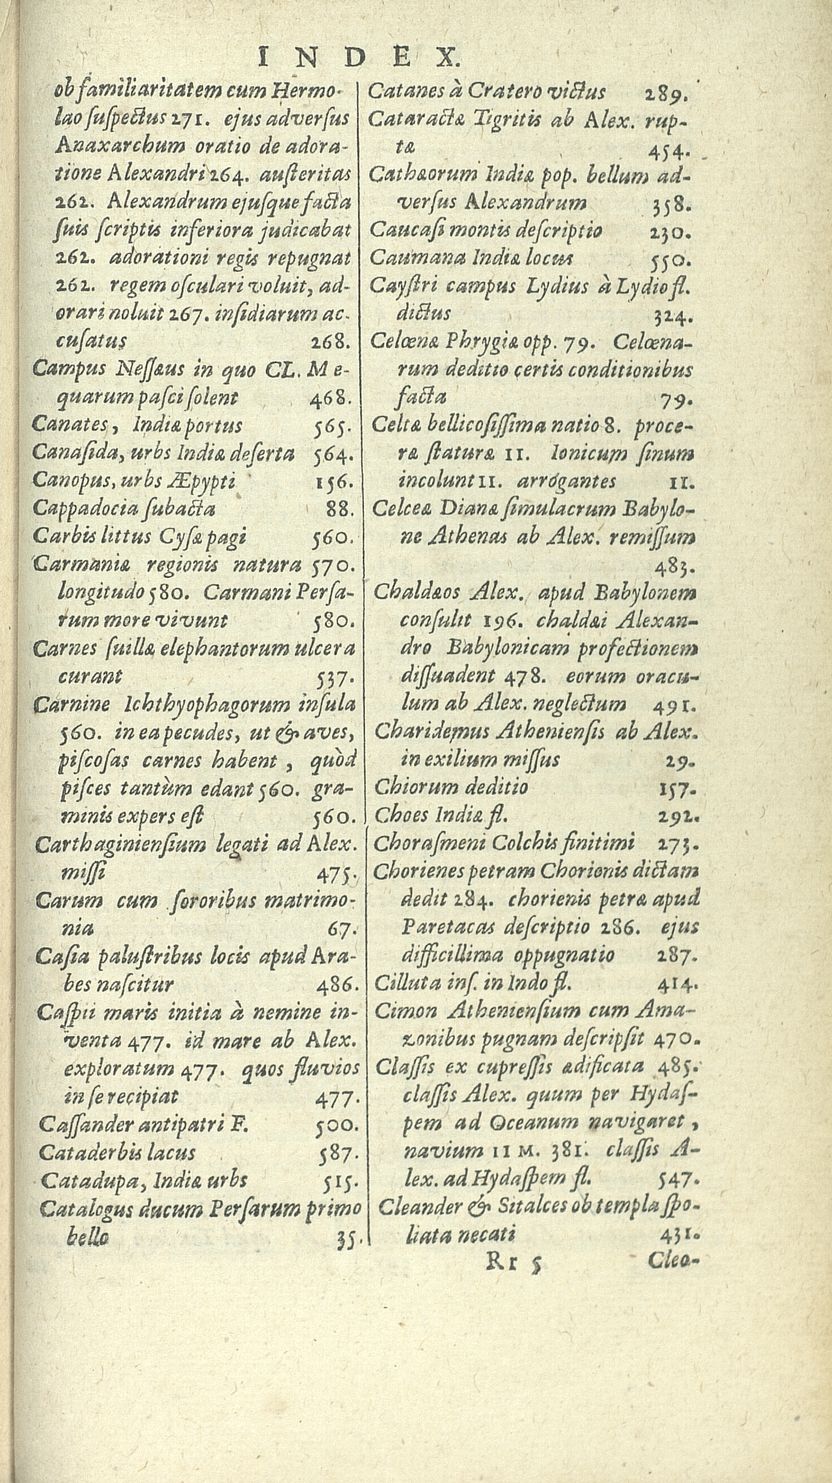 INDEX.
ob familiaritatem cum Hermo-
lao ſuſpectus 271. ejus adverſus
Anaxarchum oratio de adora-
tione Alexandri 264. auſteritas
262. Alexandrum ejuſque facta
ſuis ſcriptis inferiora judicabat
262. adorationi regis repugnat
262. regem oſculari voluit, ad-
orari noluit 267. inſidiarum ac-
cuſatus 268.
Campus Neſſæus in quo CL. M e-
quarum paſci ſolent 468.
Canates, Indiæ portus 565.
Canaſida, urbs Indiæ deſerta 564.
Canopus, urbs Æpypti 156.
Cappadocia ſubacta 88.
Carbis littus Cyſæ pagi 560.
Carmaniæ regionis natura 570.
longitudo 580. Carmani Perſa-
rum more vivunt 580.
Carnes ſuillæ elephantorum ulcera
curant 537.
Carnine Ichthyophagorum inſula
560. in ea pecudes, ut & aves,
piſcoſas carnes habent, quòd
piſces tantùm edant 560. gra-
minis expers eſt 560.
Carthaginienſium legati ad Alex.
miſſi 475.
Carum cum ſororibus matrimo-
nia 67.
Caſia paluſtribus locis apud Ara-
bes naſcitur 486.
Caſpii maris initia à nemine in-
venta 477. id mare ab Alex.
exploratum 477. quos fluvios
in ſe recipiat 477.
Caſſander antipatri F. 500.
Cataderbis lacus 587.
Catadupa, Indiæ urbs 515.
Catalogus ducum Perſarum primo
bello 35.
Catanes à Cratero victus 289.
Cataractæ Tigritis ab Alex. rup-
tæ 454.
Cathæorum Indiæ pop. bellum ad-
verſus Alexandrum 358.
Caucaſi montis deſcriptio 230.
Caumana Indiæ locus 550.
Cayſtri campus Lydius à Lydio fl.
dictus 324.
Celœnæ Phrygiæ opp. 79. Celœna-
rum deditio certis conditionibus
facta 79.
Celtæ bellicoſiſſima natio 8. proce-
ræ ſtaturæ 11. Ionicum ſinum
incolunt 11. arrogantes 11.
Celceæ Dianæ ſimulacrum Babylo-
ne Athenas ab Alex. remiſſum
483.
Chaldæos Alex. apud Babylonem
conſulit 196. chaldæi Alexan-
dro Babylonicam profectionem
diſſuadent 478. eorum oracu-
lum ab Alex. neglectum 491.
Charidemus Athenienſis ab Alex.
in exilium miſſus 29.
Chiorum deditio 157.
Choes Indiæ fl. 292.
Choraſmeni Colchis finitimi 273.
Chorienes petram Chorionis dictam
dedit 284. chorienis petræ apud
Paretacas deſcriptio 286. ejus
difficillima oppugnatio 287.
Cilluta inſ. in Indo fl. 414.
Cimon Athenienſium cum Ama-
zonibus pugnam deſcripſit 470.
Claſſis ex cupreſſis ædificata 485.
claſſis Alex. quum per Hydaſ-
pem ad Oceanum navigaret,
navium II M. 381. claſſis A-
lex. ad Hydaſpem fl. 547.
Cleander & Sitalces ob templa ſpo-
liata necati 431.
Rr 5 Cleo-